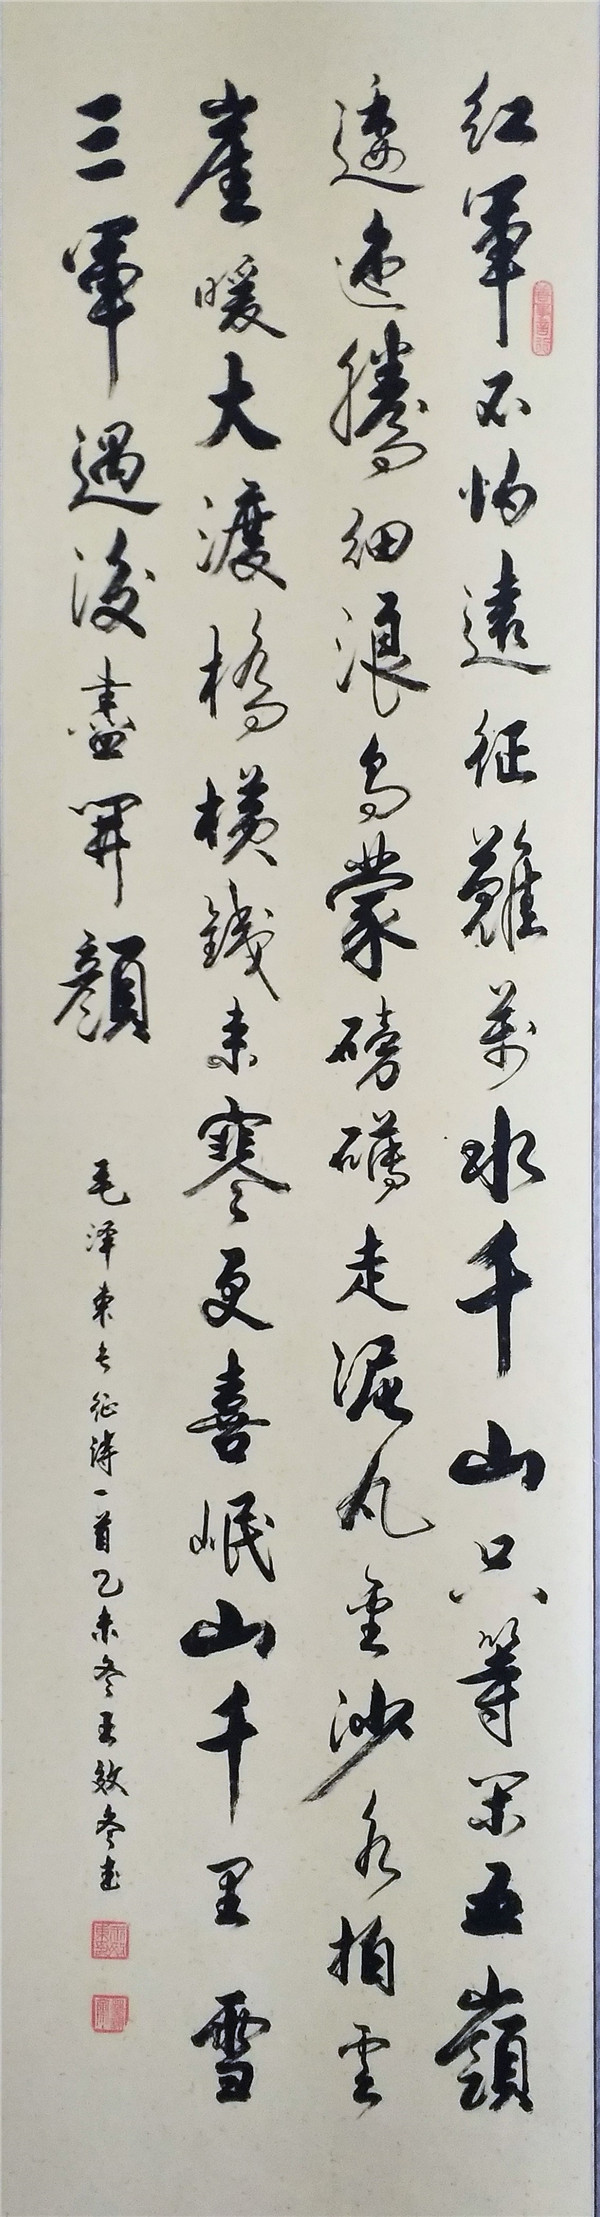 红軍不怕遠征難萬水千山只等閑五嶺
逶迤騰细浪乌蒙磅礴走泥丸金沙水拍云
崖暖大渡橋横鐵索寒更喜岷山千里雪
三軍過後盡開顏
毛泽东长征诗一首乙未冬王效冬书